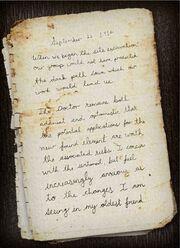 When we began the site excavation
our group could not have predicted
the dark path down which our
work would lead us.
The Doctor remains both
adamant and optimistic that
the potential applications for the
new found element are worth
the associated risks. I concur
with the but feel
increasingly anxious as
to the changes I am
seeing in my oldest friend